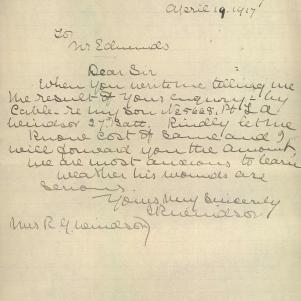 April 19. 1917
To
Mr Edmunds
Dear Sir
When you write me telling me
the result of your enquiry by
Cable re my son No 5668. Pt L.A
Windsor 27th Batt. Kindly let me
know cost of same and I
will forward you the amount,
we are most anxious to learn
weather his wounds are
serious.
Yours Very Sincerely
R Windsor
Mrs R. G. Windsor